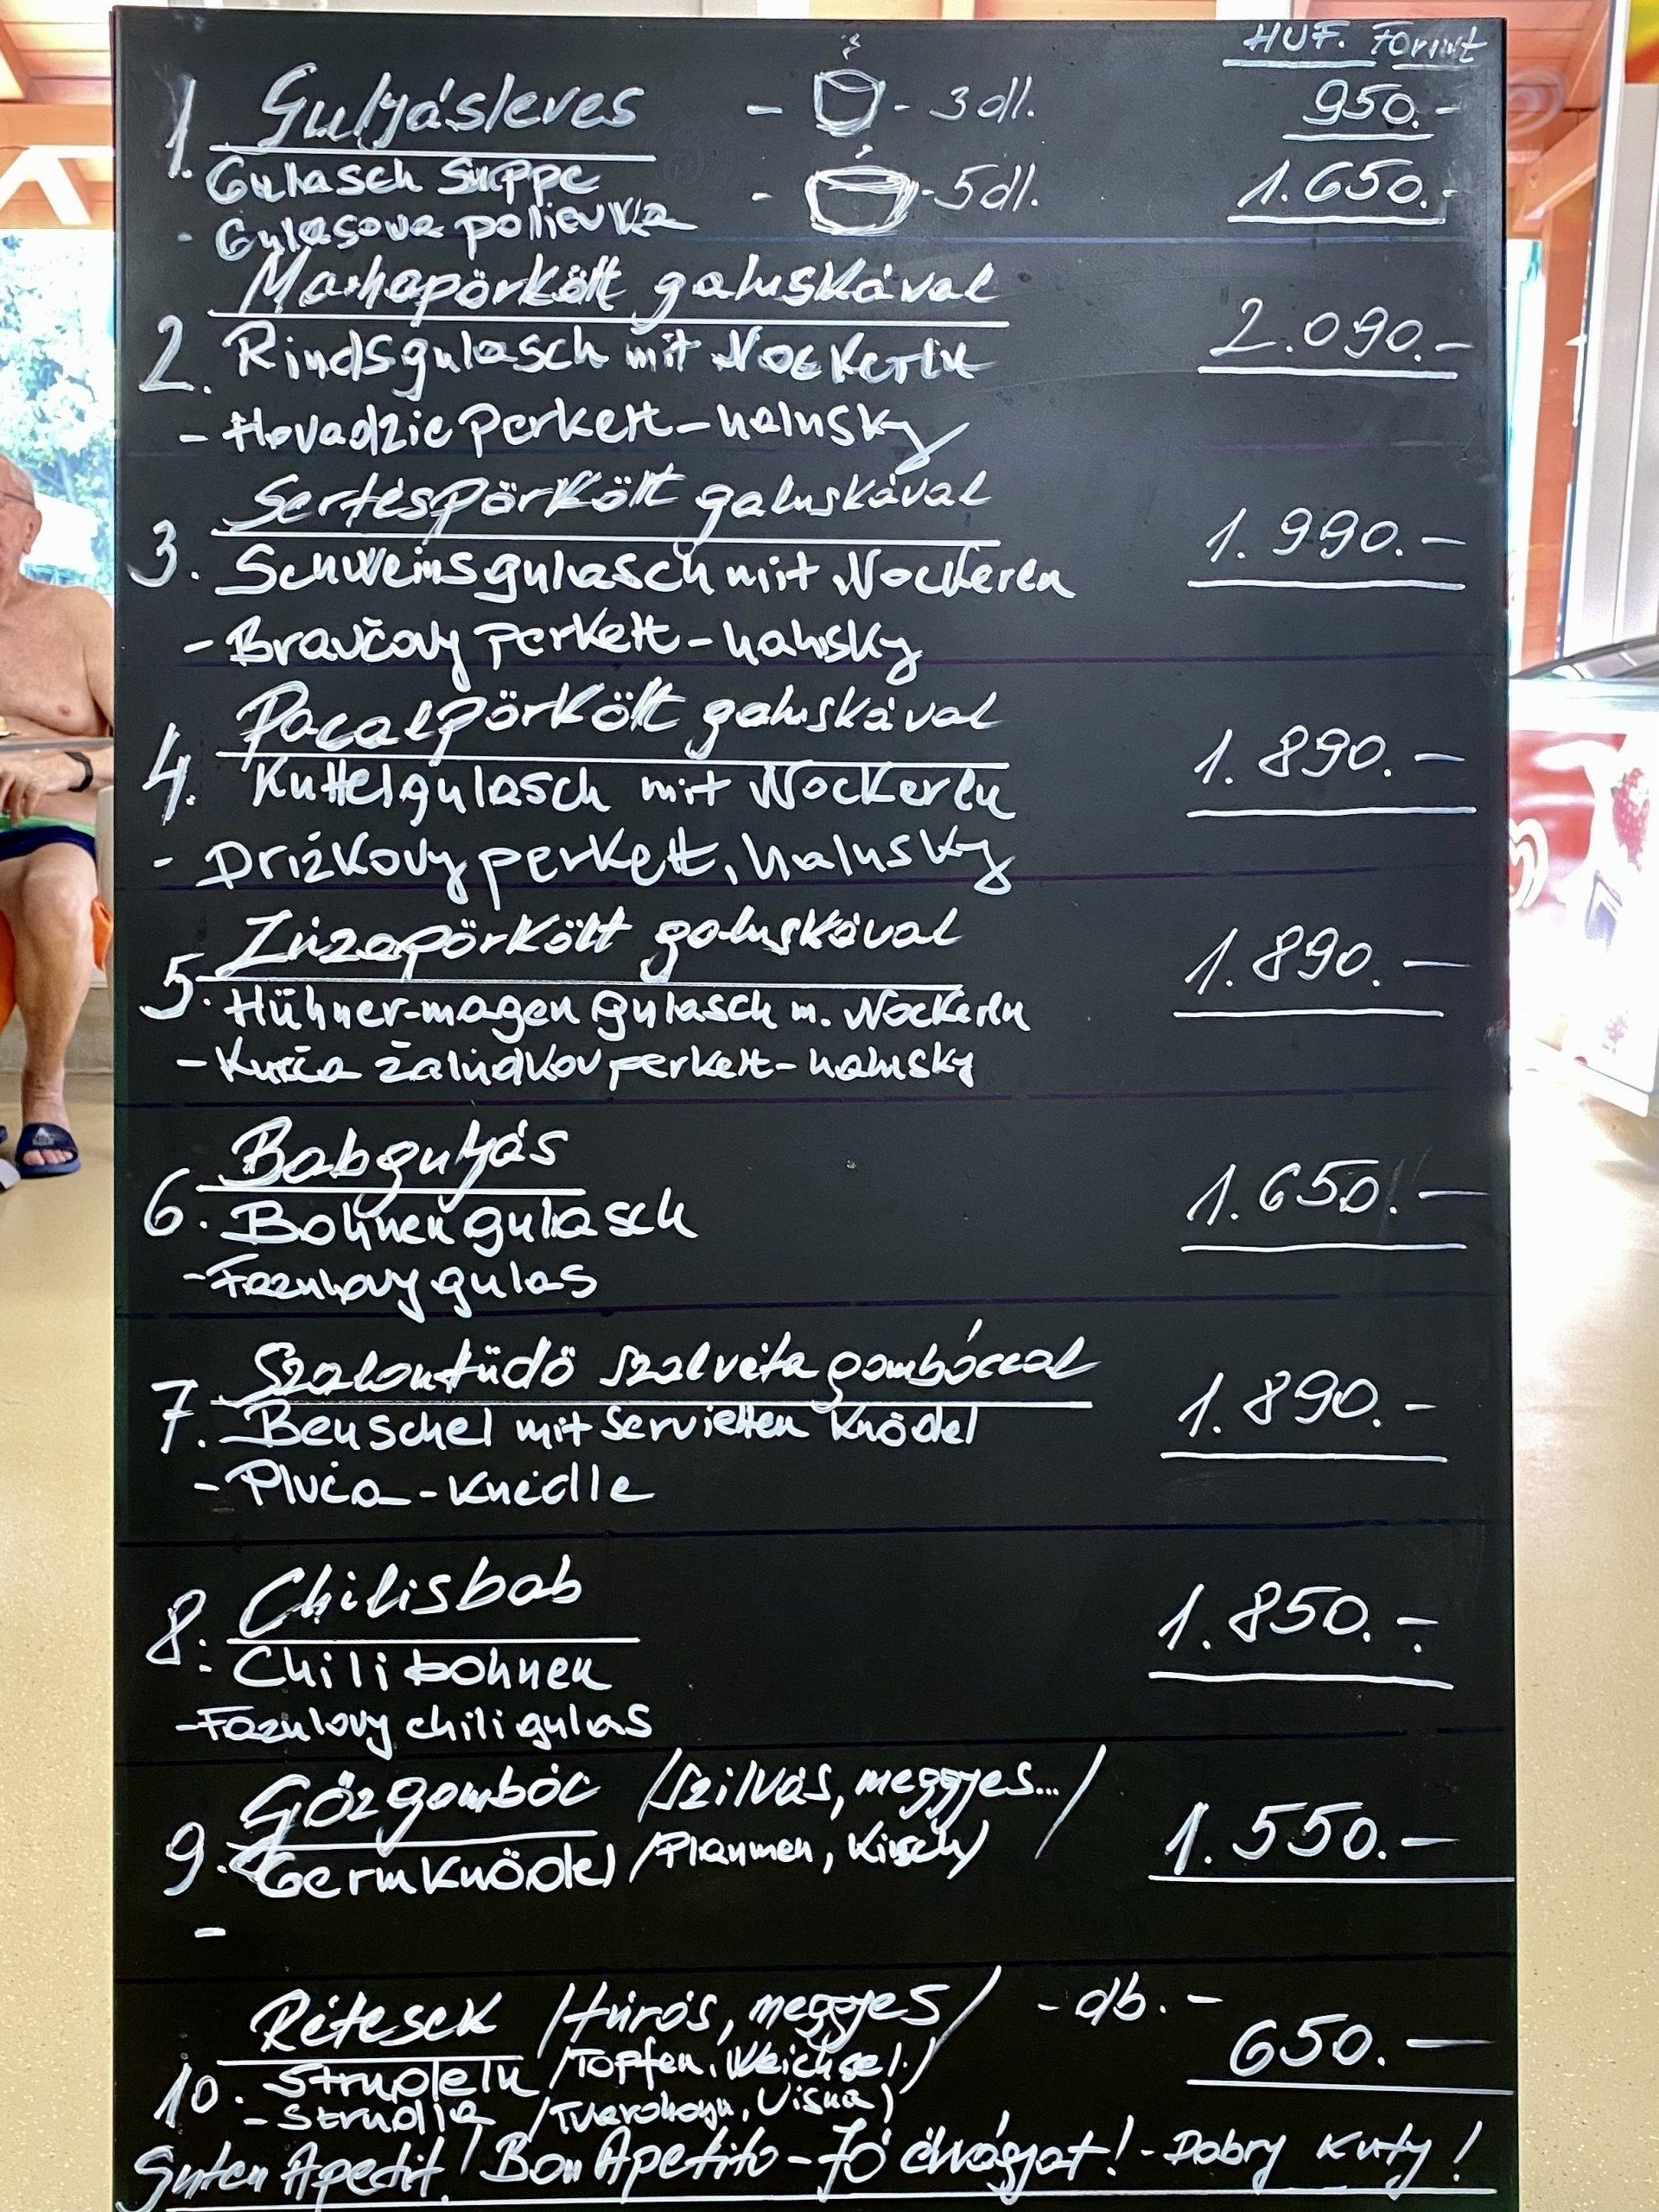 HUF. Forint
1. Gulyásleves - - 3 dl. 950.-
Gulasch Suppe - - 5 dl. 1.650.-
- Gulasova polievka
Marhapörkölt galuskával
2. Rindsgulasch mit Nockerln 2.090.-
- Hovadzie perkelt - halusky
Sertéspörkölt galuskával
3. Schweinsgulasch mit Nockerln 1.990.-
- Bravčovy perkelt - halusky
Pacalpörkölt galuskával
4. Kuttelgulasch mit Nockerln 1.890.-
- Držkovy perkelt, halusky
Zúzapörkölt galuskával
5. Hühner-magen gulasch m. Nockerln 1.890.-
- Kurča žaludkov perkelt - halusky
Babgulyás
6. Bohnengulasch 1.650.-
- Fazulovy gulas
Szalontüdö szalvéta gombóccal
7. Beuschel mit Servietten Knödel 1.890.-
- Pluča - Knedlle
Chilisbab
8. Chilibohnen 1.850.-
- Fazulovy chili gulas
Gőzgombóc /szilvás, meggyes.../
9. Germknödel /Pflaumen, Kirsch/ 1.550.-
-
Rétesek /túrós, meggyes/ - db. -
10. Strudeln /Topfen, Weichsel./ 650.-
- Strudlia /Tvarohovy, Visna/
Guten Apetit! Bon Apetito - Jó étvágyat! - Dobry Kuty!